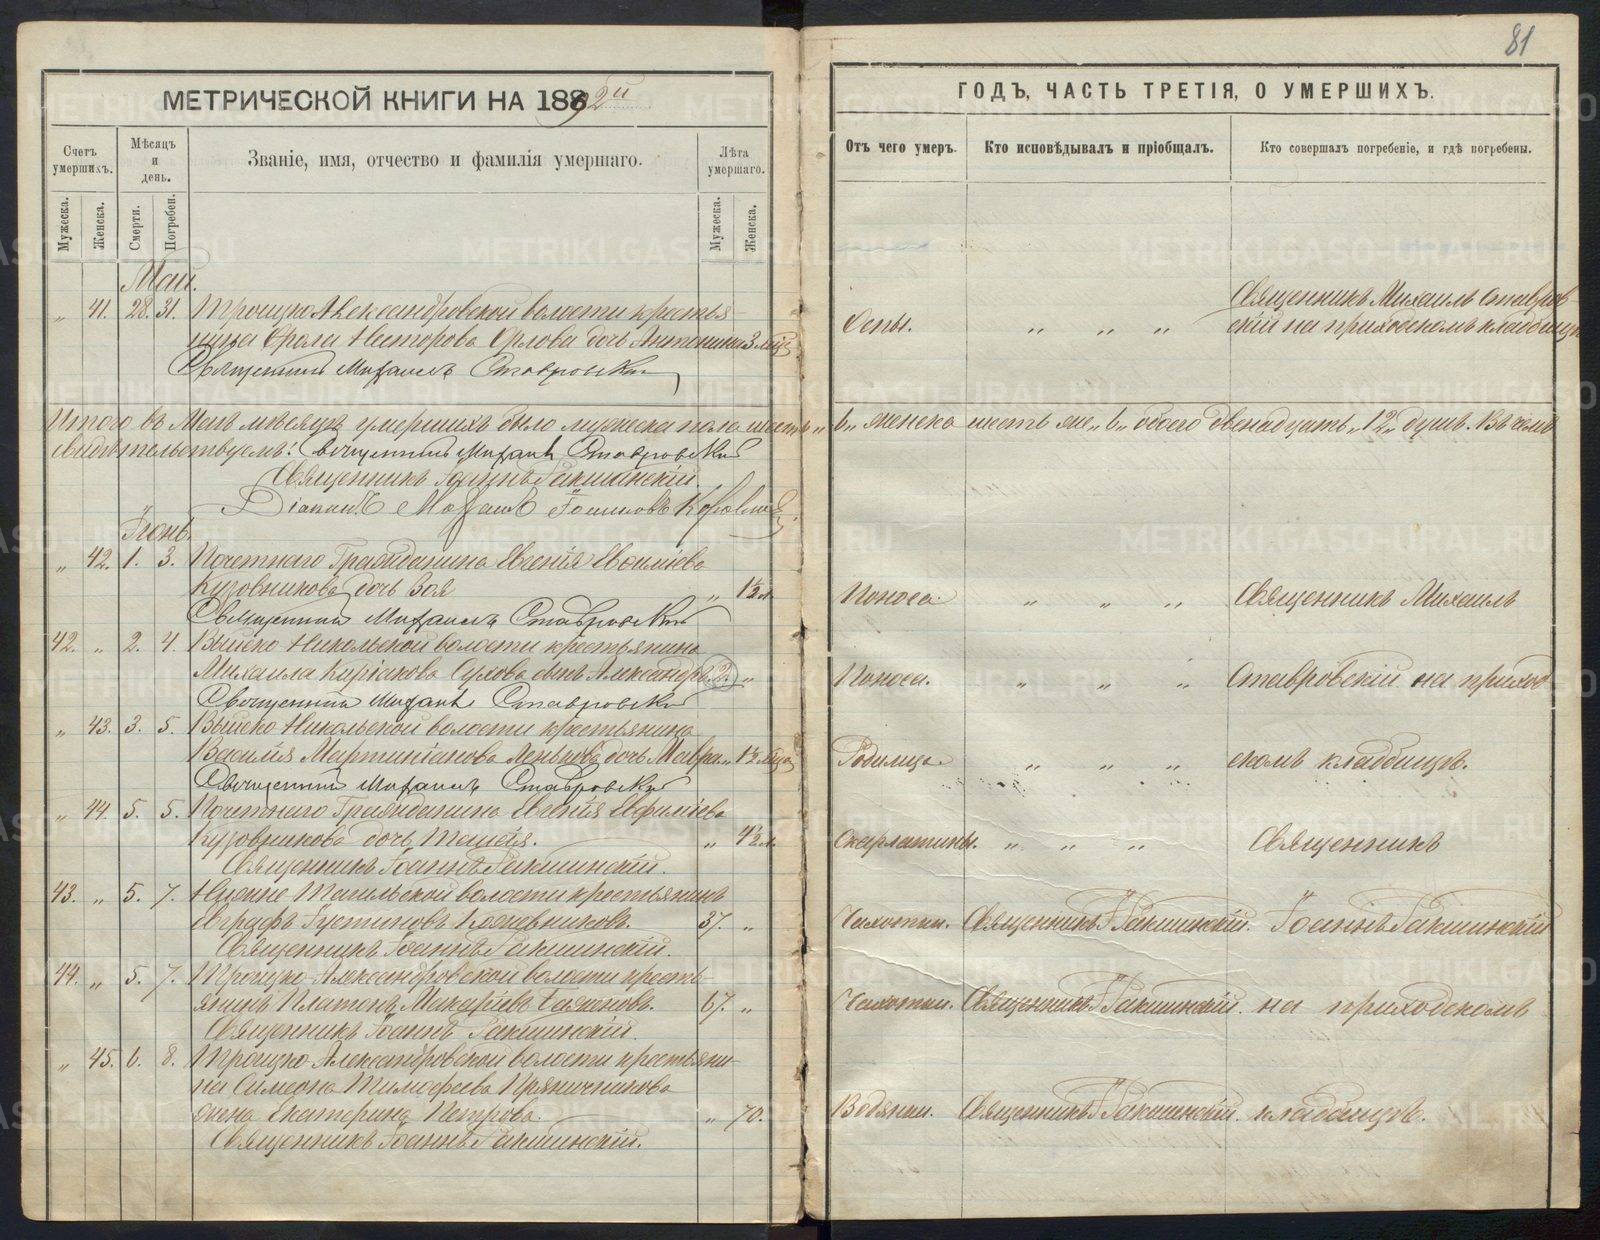 81
МЕТРИЧЕСКОЙ КНИГИ НА 1892й
ГОДЪ, ЧАСТЬ ТРЕТІЯ, О УМЕРШИХЪ.
Счетъ умершихъ.
Мѣсяцъ и день.
Званіе, имя, отчество и фамилія умершаго.
Лѣта умершаго.
Отъ чего умеръ.
Кто исповѣдывалъ и пріобщалъ.
Кто совершалъ погребеніе, и гдѣ погребены.
Мужеска.
Женска.
Смерти.
Погребен.
Мужеска.
Женска.
Май.
„ 41. 28. 31. Троицко Александровской волости крестья-
Нестерова Орлова дочь Антонина 3 мѣс.
Оспы. „ „ „ Священникъ Михаилъ Ставров
скій на приходскомъ кладбищѣ
Священникъ Михаилъ Ставровскій
Итого въ Маѣ мѣсяцѣ умершихъ было мужеска пола шесть „6„ женска шесть же „6„ обоего двенадцать „12„ душъ. Въ чемъ
свидѣтельствуемъ: Священникъ Михаилъ Ставровскій
Священникъ Іоаннъ Гакшинскій.
Діаконъ Михаилъ
Іюнь.
„ 42. 1. 3. Почетнаго Гражданина Евгенія Евфиміева
Кузовникова дочь Зоя „ 1½ л.
Поноса. „ „ „ Священникъ Михаилъ
Священникъ Михаилъ Ставровскій
42. „ 2. 4. Выйско Никольской волости крестьянина
Михаила Киріакова Сухова сынъ Александръ. 2. „
Поноса. „ „ „ Ставровскій на приход
Священникъ Михаилъ Ставровскій
„ 43. 3. 5. Выйско Никольской волости крестьянина
Василія Мартиніанова дочь Мавра. „ 1½ мѣс.
Родимца „ „ „ скомъ кладбищѣ.
Священникъ Михаилъ Ставровскій
„ 44. 5. 5. Почетнаго Гражданина Евгенія Евфиміева
Кузовникова дочь Таисія. „ 4½ л.
Скарлатины. „ „ „ Священникъ
Священникъ Іоаннъ Гакшинскій.
43. „ 5. 7. Нижне Тагильской волости крестьянинъ
Евграфъ Іустиновъ Кожевниковъ. 37. „
Чахотки. Священникъ І. Гакшинскій. Іоаннъ Гакшинскій
Священникъ Іоаннъ Гакшинскій.
44. „ 5. 7. Троицко Александровской волости кресть-
янинъ Платонъ Макаріевъ 67. „
Чахотки. Священникъ І. Гакшинскій. на приходскомъ
Священникъ Іоаннъ Гакшинскій.
„ 45. 6. 8. Троицко Александровской волости крестьяни-
на Симеона Тимофеева Пряничникова
жена Екатерина Петрова. „ 70.
Водянки. Священникъ І. Гакшинскій. кладбищѣ.
Священникъ Іоаннъ Гакшинскій.
METRIKI.GASO-URAL.RU